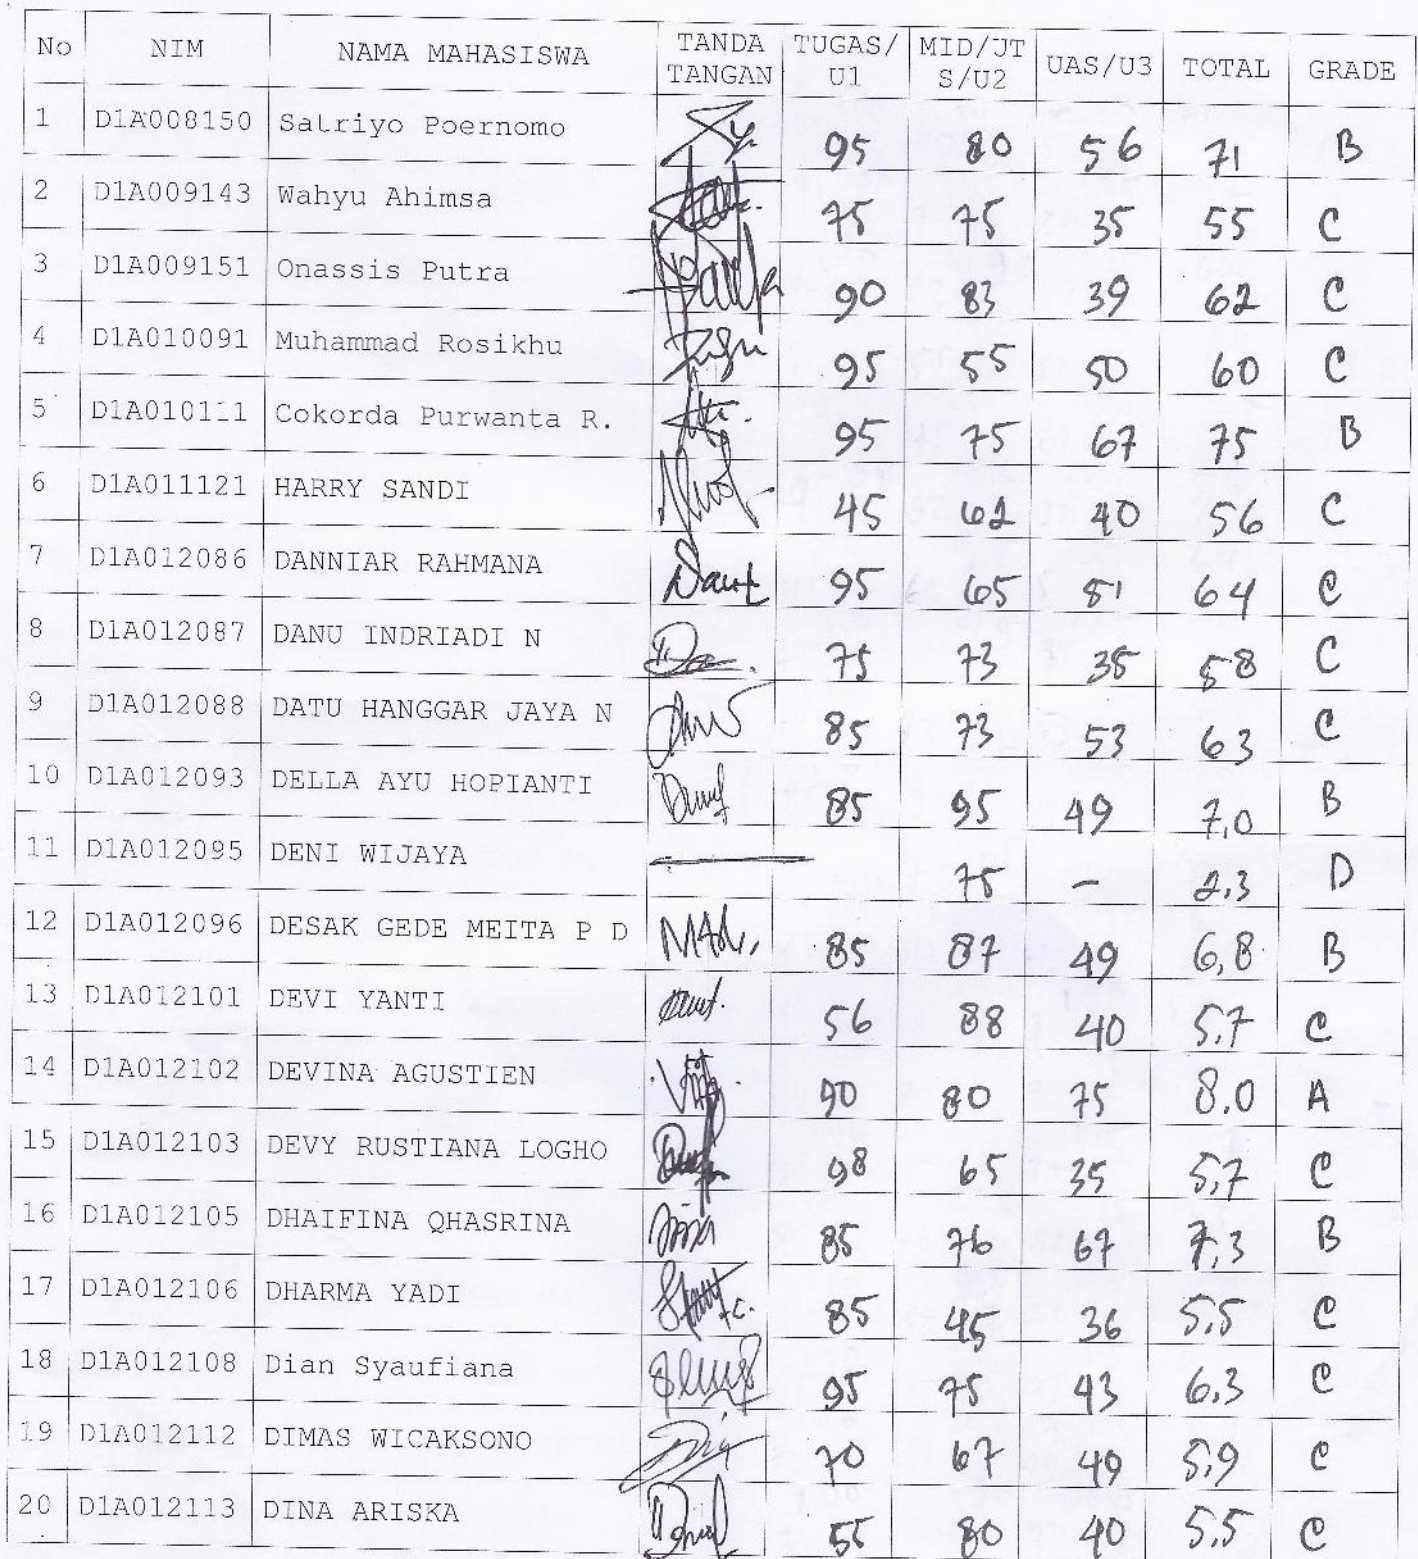 No NIM NAMA MAHASISWA TANDA TANGAN TUGAS/U1 MID/JTS/U2 UAS/U3 TOTAL GRADE
1 D1A008150 Satriyo Poernomo 95 80 56 71 B
2 D1A009143 Wahyu Ahimsa 75 75 35 55 C
3 D1A009151 Onassis Putra 90 83 39 62 C
4 D1A010091 Muhammad Rosikhu 95 55 50 60 C
5 D1A010111 Cokorda Purwanta R. 95 75 67 75 B
6 D1A011121 HARRY SANDI 45 62 40 56 C
7 D1A012086 DANNIAR RAHMANA 95 65 51 64 C
8 D1A012087 DANU INDRIADI N 75 73 35 58 C
9 D1A012088 DATU HANGGAR JAYA N 85 73 53 63 C
10 D1A012093 DELLA AYU HOPIANTI 85 95 49 7,0 B
11 D1A012095 DENI WIJAYA 75 - 2,3 D
12 D1A012096 DESAK GEDE MEITA P D 85 87 49 6,8 B
13 D1A012101 DEVI YANTI 56 88 40 5,7 C
14 D1A012102 DEVINA AGUSTIEN 90 80 75 8.0 A
15 D1A012103 DEVY RUSTIANA LOGHO 98 65 35 5,7 C
16 D1A012105 DHAIFINA QHASRINA 85 76 67 7,3 B
17 D1A012106 DHARMA YADI 85 45 36 5,5 C
18 D1A012108 Dian Syaufiana 95 75 43 6,3 C
19 D1A012112 DIMAS WICAKSONO 70 67 49 5,9 C
20 D1A012113 DINA ARISKA 55 80 40 5,5 C